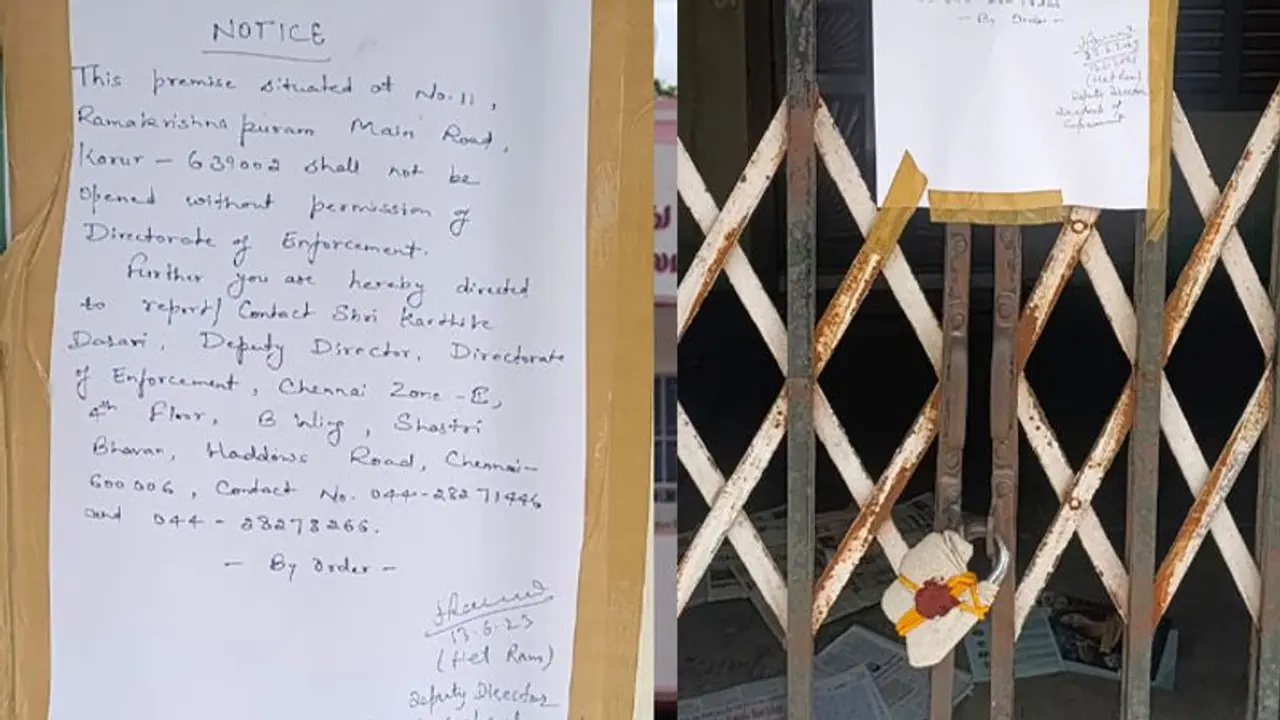 NOTICE
This premise situated at No. 11,
Ramakrishnapuram Main Road,
Karur - 639002 shall not be
opened without permission of
Directorate of Enforcement.
Further you are hereby directed
to report/ Contact Shri Karthik
Dasari, Deputy Director, Directorate
of Enforcement, Chennai Zone -
4th Floor, B Wing, Shastri
Bhavan, Haddows Road, Chennai-
600006, Contact No. 044-28271446
and 044-28278266.
- By Order -
13.6.23
(Het Ram)
Deputy Director
- By Order -
(Het Ram)
Deputy Director
Enforcement